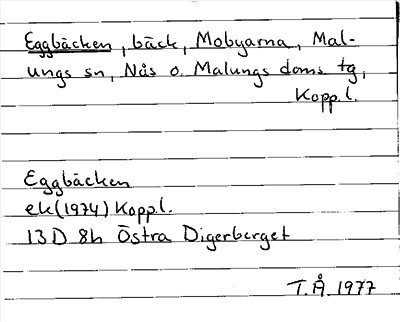 Eggbäcken, bäck, Mobyarna, Mal-
ungs sn, Nås o. Malungs doms tg,
Kopp.l.
Eggbäcken
ek(1974) Kopp.l.
13D 8h Östra Digerberget
T.Å. 1977